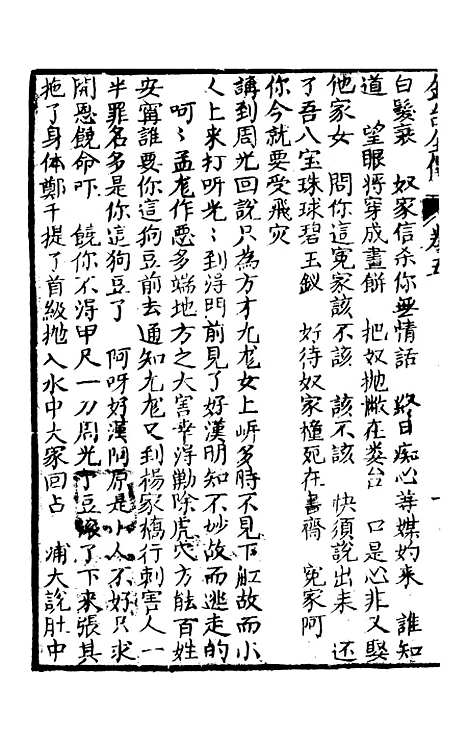 金台全傳 卷五 一
白髮衰 奴家信杀你無情話 終日痴心等媒妁来 誰知
道 望眼將穿成畫餅 把奴抛撇在粪台 口是心非又娶
他家女 問你這冤家該不該 該不該 快須說出来 还
了吾八宝珠球碧玉釵 好待奴家撞死在書齋 冤家阿
你今就要受飛灾
講到周光回說只為方才尤龙女上岍多時不見下舡故而小
人上来打听光〻到得門前見了好漢明知不妙故而逃走的
呵〻孟龙作惡多端地方之大害幸得勦除虎穴方能百姓
安寧誰要你這狗豆前去通知尤龙又到楊家橋行刺害人一
半罪名多是你這狗豆了 阿呀好漢阿原是小人不好只求
開恩饒命吓 饒你不得甲尺一刀周光丁豆滚了下来張其
拖了身体鄭千提了首級抛入水中大家回占 浦大說肚中